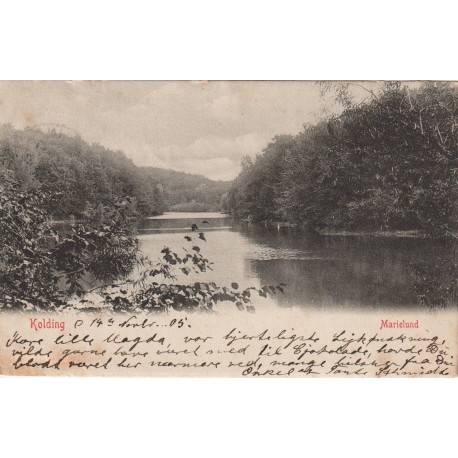 Kolding d 14de Novbr. 05.
Marielund
Kære lille Magda, vor hjerteligste Lykønskning,
vilde gerne have været med til Chokolade, havde Du
blodt været her nærmere ved, mange hilsner fra Din
Onkel og Tante Schmidt